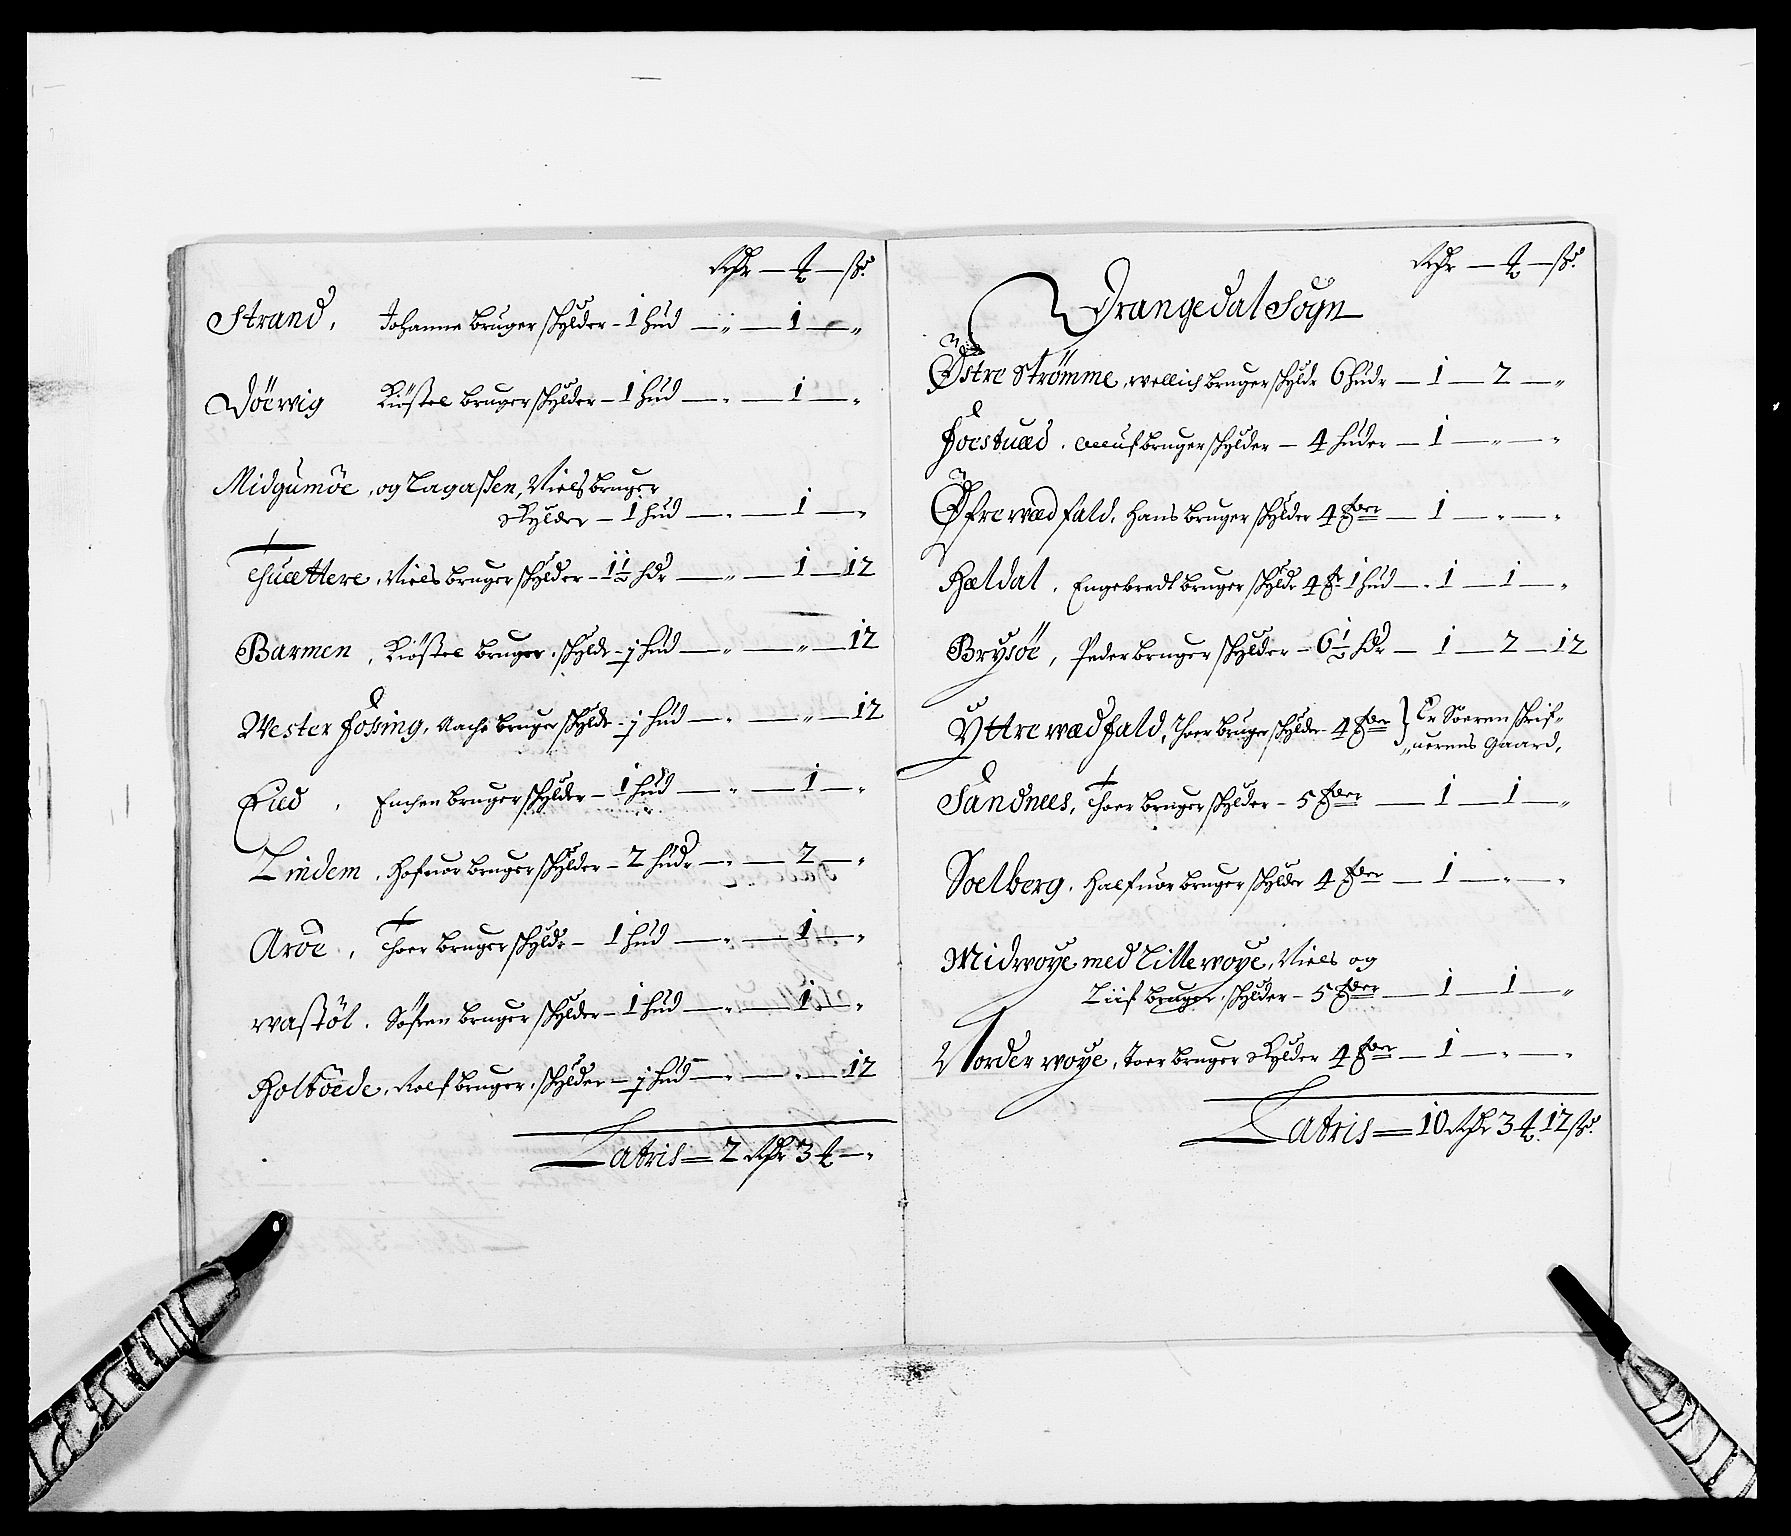 Rdr — ƶ — ß.
Strand, Johanne bruger skylder – 1 hud — „ — 1 — „
Döervig Kiöstel bruger skylder – 1 hud — „ — 1 — „
Midgumöe, og Tagassen, Niels bruger
skylder – 1 hud — „ — 1 — „
Thuættere, Niels bruger skylder – 1½ hdr — „ — 1 — 12
Barmen, Kiöstel bruger, skyldr – ½ hud — „ — „ — 12
Vester Fossing, Aache bruger skyldr – ½ hud — „ — „ — 12
bruger skylder – 1 hud — „ — 1 — „
Lindem, Hafuor bruger skylder – 2 hudr — „ — 2 — „
Aröe, Thoer bruger skyldr – 1 hud — „ — 1 — „
Wastöl, Söfren bruger skylder – 1 hud — „ — 1 — „
Holtöede, Rolf bruger, skylder – ½ hud — „ — „ — 12
Latris = 2 Rdr 3 ƶ — „
Rdr — ƶ — ß.
Drangedal Sogn
Östre Strömme, wellich bruger skyldr 6 hudr — 1 — 2 — „
bruger skylder – 4 huder — 1 — „ — „
Öfre wædfald, Hans bruger skylder 4 Fder — 1 — „ — „
Hældal, Engebredt bruger skyldr 4 Fr 1 hud — 1 — 1 — „
Brysöe, Peder bruger skylder – 6½ hdr — 1 — 2 — 12
Yttre wædfald, Thoer bruger skylder 4 Fder } Er Soeren skrif-
„uerens Gaard,
Sandnees, Thoer bruger skylder – 5 Fder — 1 — 1 — „
Soelberg, Halfuor bruger skylder 4 Fder — 1 — „ — „
Midwoye med Lille woye, Niels og
Liif bruger, skylder – 5 Fder — 1 — 1 — „
Norder woye, Toer bruger skylder 4 Fder — 1 — „ — „
Latris = 10 Rdr 3 ƶ 12 ß.